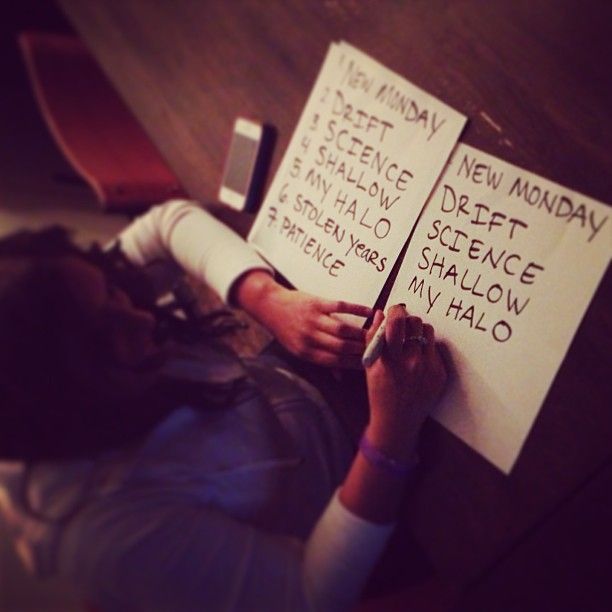 1. NEW MONDAY
2. DRIFT
3 SCIENCE
4 SHALLOW
5. MY HALO
6. STOLEN YEARS
7. PATIENCE
NEW MONDAY
DRIFT
SCIENCE
SHALLOW
MY HALO